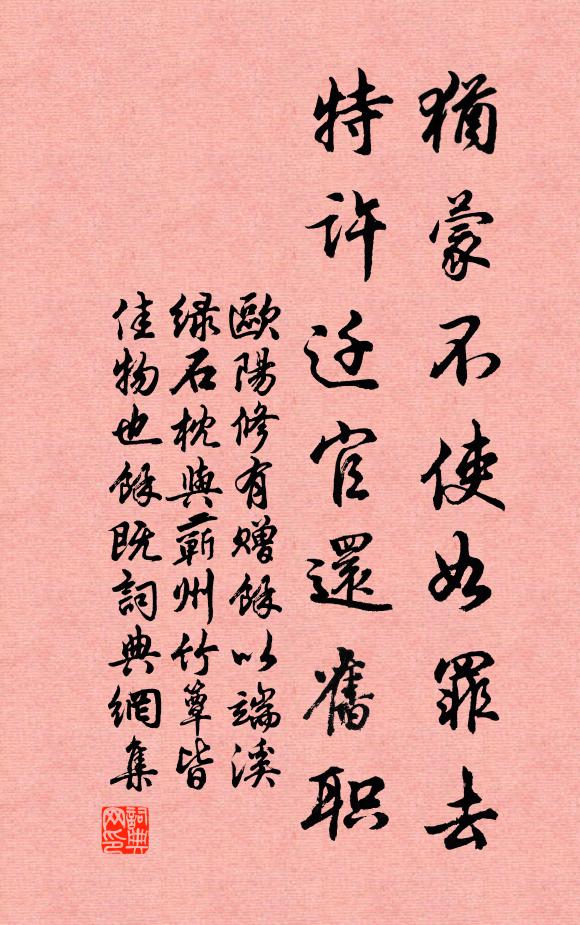 猶蒙不使如罪去
特许迁官還舊职
歐陽修有赠餘以端溪
绿石枕與蕲州竹簟皆
佳物也餘既詞典網集
詞典网印